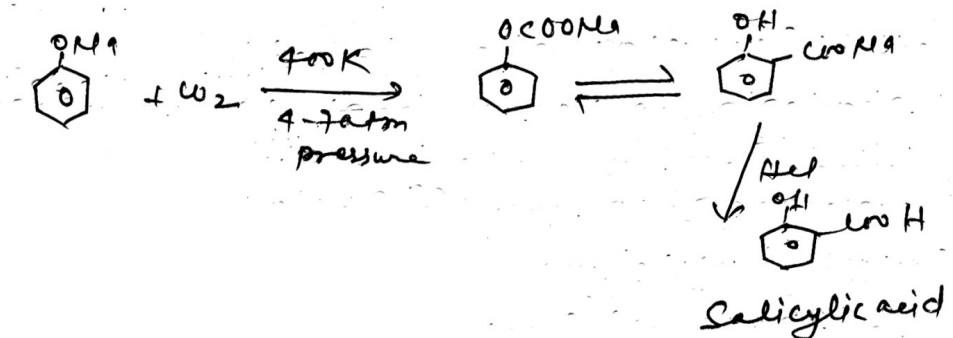 ONa + CO2 400K 4-7atm pressure
OCOONa
OH COONa
HCl
OH COOH
Salicylic acid